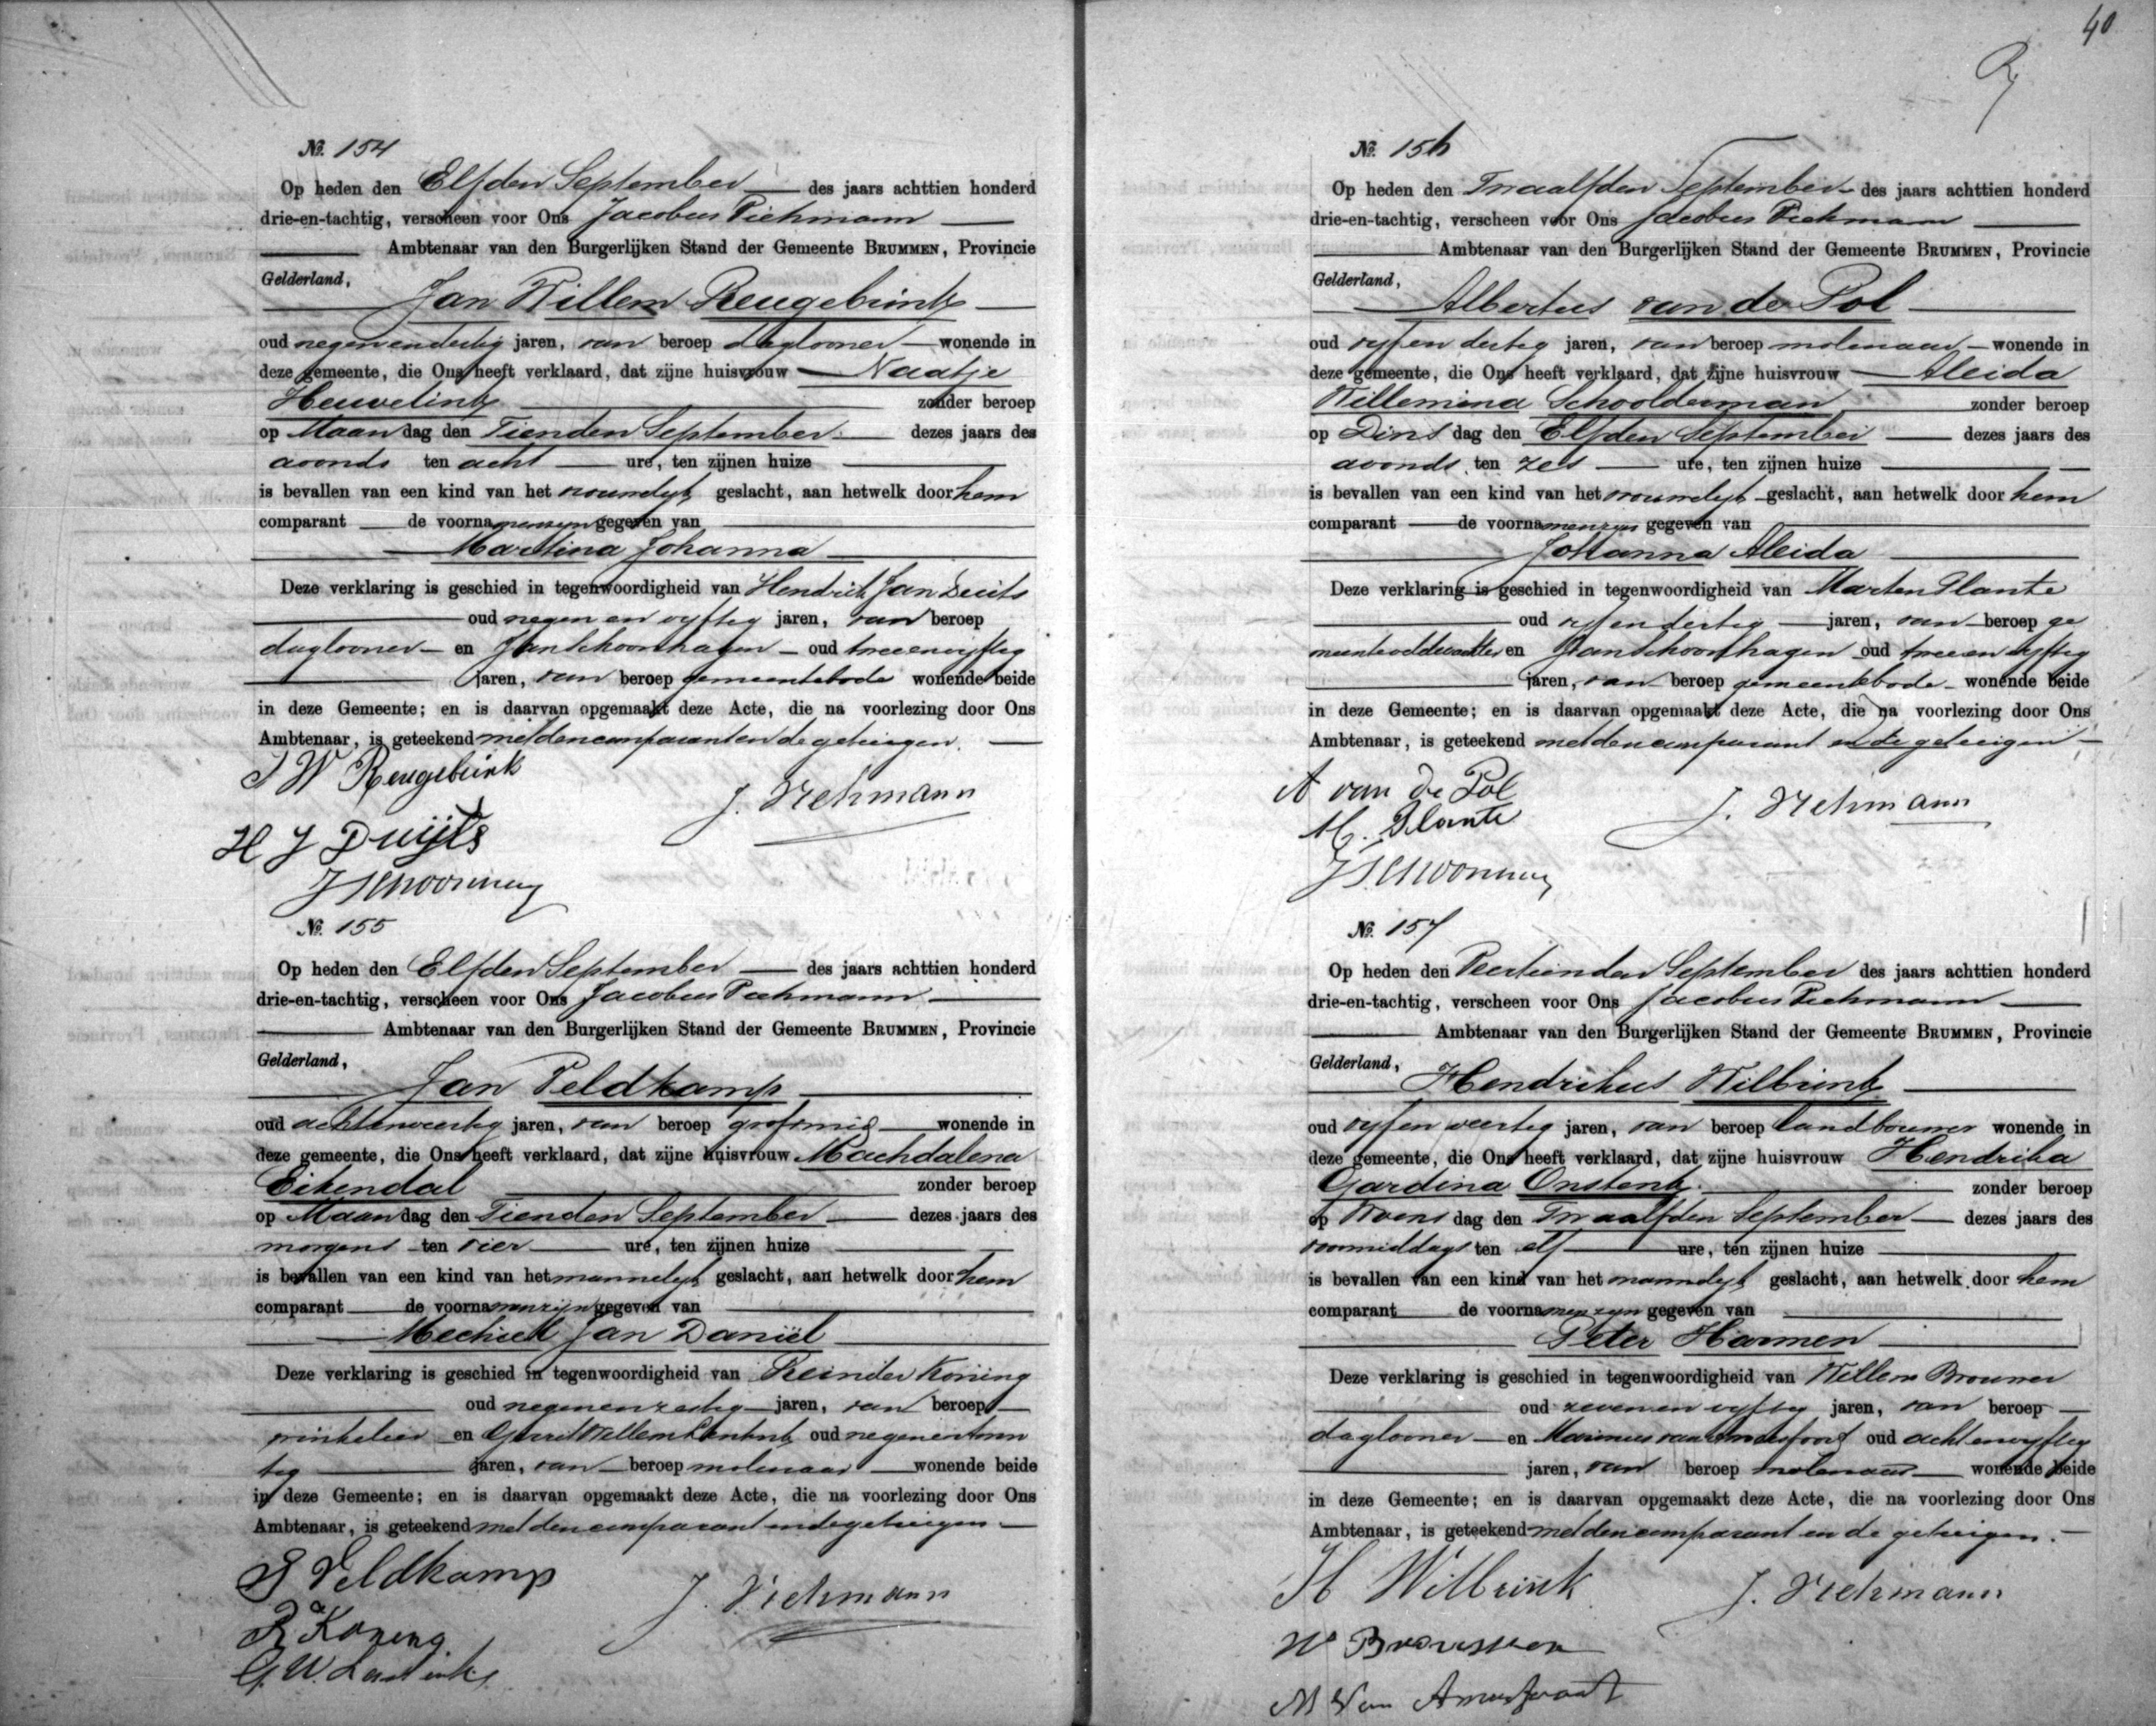 40
№. 154
Op heden den Elfden September des jaars achttien honderd
drie-en-tachtig, verscheen voor Ons Jacobus Viehmann
Ambtenaar van den Burgerlijken Stand der Gemeente BRUMMEN, Provincie
Gelderland,
Jan Willem Reugebrink
oud negenendertig jaren, van beroep daglooner wonende in
deze gemeente, die Ons heeft verklaard, dat zijne huisvrouw Naatje
Heuvelink zonder beroep
op Maandag den Tienden September dezes jaars des
avonds ten acht ure, ten zijnen huize
is bevallen van een kind van het vrouwelijk geslacht, aan hetwelk door hem
comparant de voornamen zijn gegeven van
Martina Johanna
Deze verklaring is geschied in tegenwoordigheid van Hendrik Jan Duits
oud negen en vyftig jaren, van beroep
daglooner en Jan Schoonhagen oud twee en vyftig
jaren, van beroep gemeentebode wonende beide
in deze Gemeente; en is daarvan opgemaakt deze Acte, die na voorlezing door Ons
Ambtenaar, is geteekend met den comparant en de getuigen.
J W Reugebrink
J. Viehmann
H J Duijts
№. 155
Op heden den Elfden September des jaars achttien honderd
drie-en-tachtig, verscheen voor Ons Jacobus Viehmann
Ambtenaar van den Burgerlijken Stand der Gemeente BRUMMEN, Provincie
Gelderland,
Jan Veldkamp
oud achtenveertig jaren, van beroep grofsmid wonende in
deze gemeente, die Ons heeft verklaard, dat zijne huisvrouw Machdalena
Eikendal zonder beroep
op Maandag den Tienden September dezes jaars des
morgens ten vier ure, ten zijnen huize
is bevallen van een kind van het mannelyk geslacht, aan hetwelk door hem
comparant de voornamen zijn gegeven van
Mechiel Jan Daniël
Deze verklaring is geschied in tegenwoordigheid van Reinder Koning
oud negenenzestig jaren, van beroep
winkelier en Gerrit Willem Lentink oud negenentwin
tig jaren, van beroep molenaar wonende beide
in deze Gemeente; en is daarvan opgemaakt deze Acte, die na voorlezing door Ons
Ambtenaar, is geteekend met den comparant en de getuigen
J Veldkamp
J. Viehmann
R Koning
G. W. Lentink
№. 156
Op heden den Twaalfden September des jaars achttien honderd
drie-en-tachtig, verscheen voor Ons Jacobus Viehmann
Ambtenaar van den Burgerlijken Stand der Gemeente BRUMMEN, Provincie
Gelderland,
Albertus van de Pol
oud vyf en dertig jaren, van beroep molenaar wonende in
deze gemeente, die Ons heeft verklaard, dat zijne huisvrouw Aleida
Willemina Schoolderman zonder beroep
op Dinsdag den Elfden September dezes jaars des
avonds ten zes ure, ten zijnen huize
is bevallen van een kind van het vrouwelyk geslacht, aan hetwelk door hem
comparant de voornamen zyn gegeven van
Johanna Aleida
Deze verklaring is geschied in tegenwoordigheid van Marten Plante
oud vyf en dertig jaren, van beroep ge
meenteveldwachter en Jan Schoonhagen oud twee en vyftig
jaren, van beroep gemeentebode wonende beide
in deze Gemeente; en is daarvan opgemaakt deze Acte, die na voorlezing door Ons
Ambtenaar, is geteekend met den comparant en de getuigen
A van de Pol
J. Viehmann
M. Plante
№. 157
Op heden den Veertienden September des jaars achttien honderd
drie-en-tachtig, verscheen voor Ons Jacobus Viehmann
Ambtenaar van den Burgerlijken Stand der Gemeente BRUMMEN, Provincie
Gelderland,
Hendrikus Wilbrink
oud vyf en veertig jaren, van beroep landbouwer wonende in
deze gemeente, die Ons heeft verklaard, dat zijne huisvrouw Hendrika
Gardina Onstenk zonder beroep
op Woensdag den Twaalfden September dezes jaars des
voormiddags ten elf ure, ten zijnen huize
is bevallen van een kind van het mannelyk geslacht, aan hetwelk door hem
comparant de voornamen zyn gegeven van
Peter Harmen
Deze verklaring is geschied in tegenwoordigheid van Willem Brouwer
oud zeven en vyftig jaren, van beroep
daglooner en Marinus van Amersfoort oud acht en vyftig
jaren, van beroep molenaar wonende beide
in deze Gemeente; en is daarvan opgemaakt deze Acte, die na voorlezing door Ons
Ambtenaar, is geteekend met den comparant en de getuigen.
H Wilbrink
J. Viehmann
W Brouwer
M Van Amersfoort